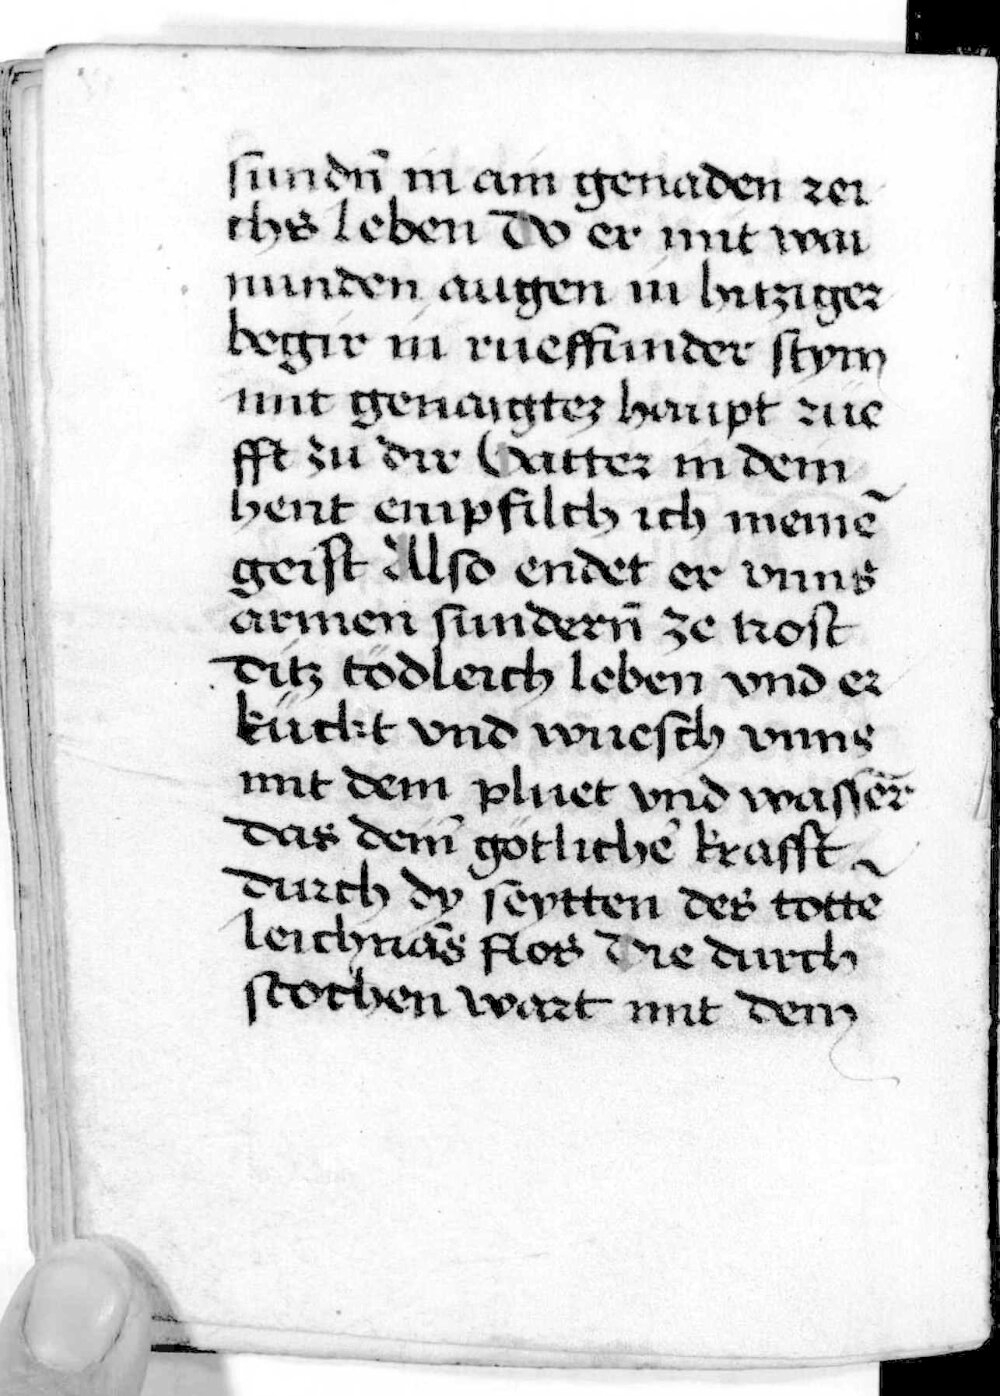 sundn̄ in ain genaden rei
chs leben Do er mit wai
nunden augen in hitziger
begir in rueffunder stym
mit genaigter haupt rüe
fft zu dir Vatter in dein
hent empfilch ich meinē
geist Also endet er vnns
armen sundern̄ ze trost
ditz tödleich leben vnd er
kückt vnd wuesch vnns
mit dem pluet vnd wasser̄
das dein̄ götlichē krafft
durch dy seytten des tottē
leichnās flos Die durch
stochen wart mit dem